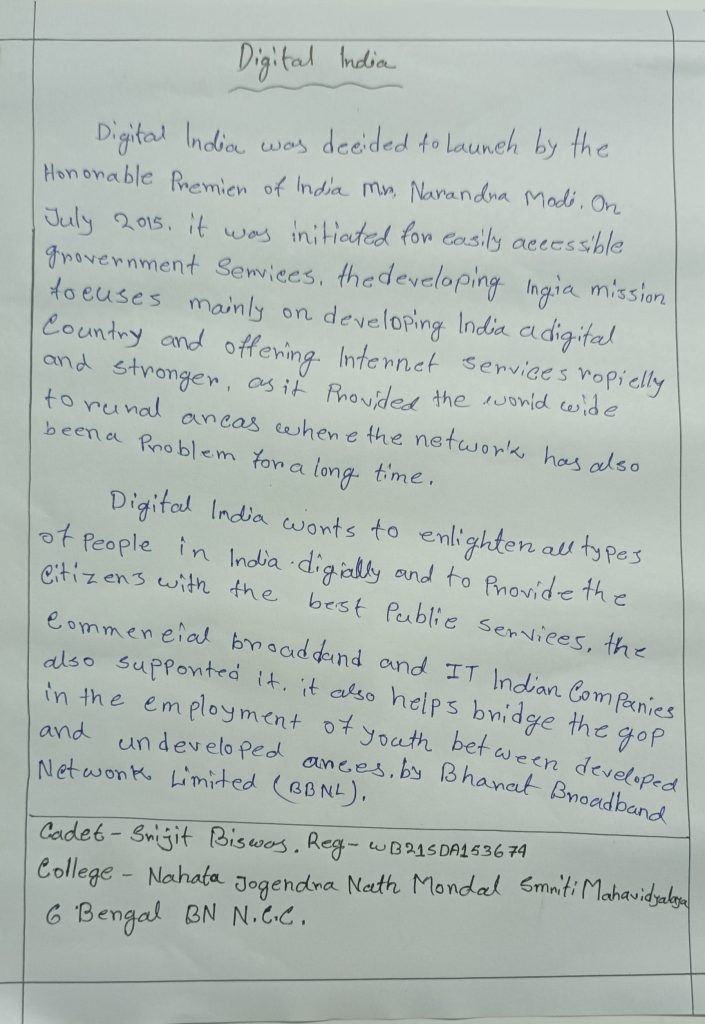 Digital India
Digital India was decided to Launch by the
Honorable Premier of India Mr. Narandra Modi. On
July 2015. it was initiated for easily accessible
grovernment Services. the developing Ingia mission
focuses mainly on developing India a digital
Country and offering Internet services ropielly
and stronger, as it Provided the world wide
to rural areas where the network has also
been a Problem for a long time.
Digital India wonts to enlighten all types
of People in India digially and to Provide the
Citizens with the best Public services. the
Commercial broaddand and IT Indian Companies
also supported it. it also helps bridge the gop
in the employment of youth between developed
and undeveloped areces. by Bharat Broadband
Network Limited (BBNL).
Cadet - Srijit Biswas. Reg - WB21SDA153674
College - Nahata Jogendra Nath Mondal Smriti Mahavidyalaya
6 Bengal BN N.C.C.